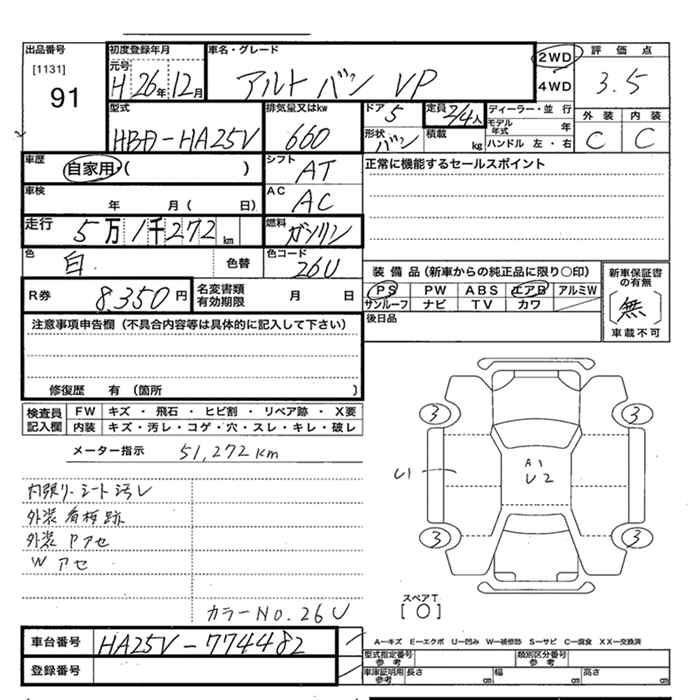 出品番号
[1131]
91
初度登録年月
元号
H 26年 12月
車名・グレード
アルト バン VP
2WD
4WD
評価点
3.5
型式
HBD-HA25V
排気量又はkw
660
ドア 5
形状 バン
定員 2/4人
積載 kg
ディーラー・並行
モデル年式 年
ハンドル 左・右
外装 内装
C C
車歴
自家用・( )
シフト
AT
正常に機能するセールスポイント
車検
年 月( 日)
AC
AC
走行
5万1千272km
燃料
ガソリン
色
白
色替
色コード
26U
R券
8,350円
名変書類
有効期限
月 日
装備品(新車からの純正品に限り○印)
PS PW ABS エアB アルミW
サンルーフ ナビ TV カワ
後日品
新車保証書
の有無
[無]
車載不可
注意事項申告欄(不具合内容等は具体的に記入して下さい)
修復歴 有(箇所 )
検査員
記入欄
FW キズ・飛石・ヒビ割・リペア跡・X要
内装 キズ・汚レ・コゲ・穴・スレ・キレ・破レ
メーター指示 51,272km
内張り、シート汚レ
外装 看板跡
外装 Pアセ
Wアセ
カラーNO.26U
3 3
U1
A1
U2
3 3
スペアT
[0]
A―キズ E―エクボ U―凹み W―補修跡 S―サビ C―腐食 XX―交換済
車台番号
HA25V-774482
登録番号
型式指定番号
参考
類別区分番号
参考
車庫証明用
参考
長さ cm 幅 cm 高さ cm